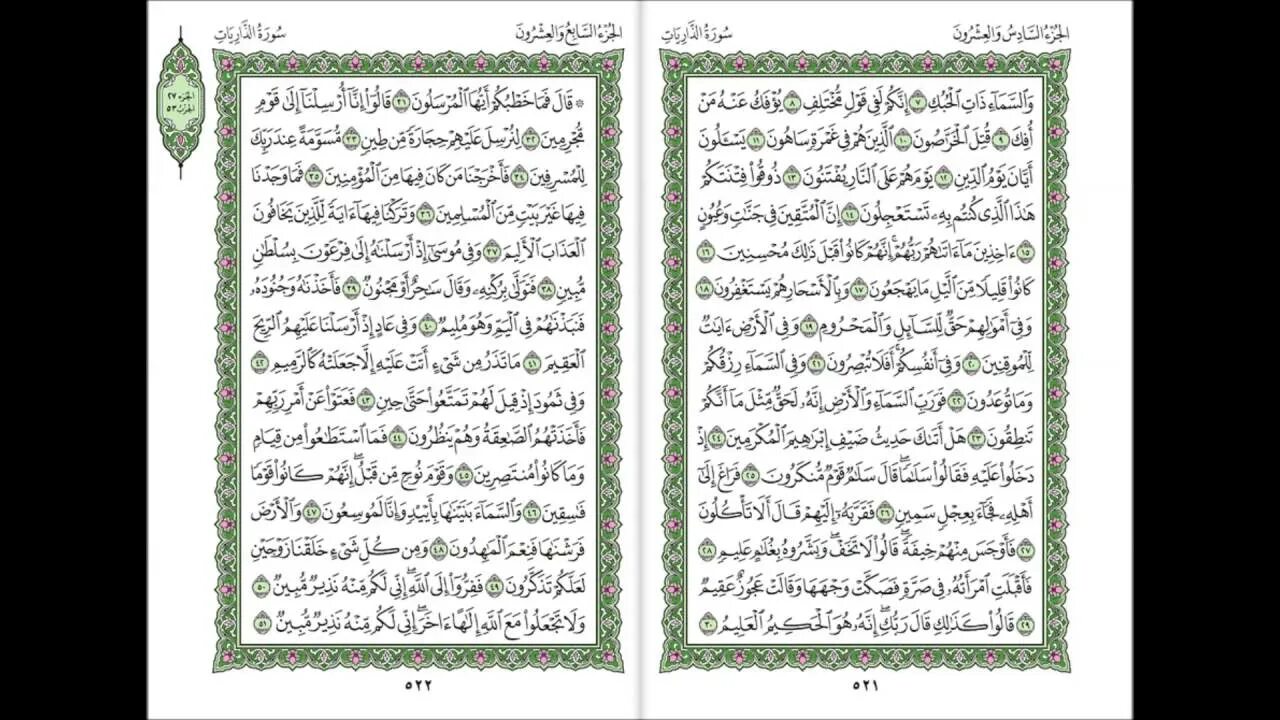 الجزء السادس والعشرون
سورة الذاريات
وَٱلسَّمَآءِ ذَاتِ ٱلْحُبُكِ ٧ إِنَّكُمْ لَفِى قَوْلٍ مُّخْتَلِفٍ ٨ يُؤْفَكُ عَنْهُ مَنْ
أُفِكَ ٩ قُتِلَ ٱلْخَرَّٰصُونَ ١٠ ٱلَّذِينَ هُمْ فِى غَمْرَةٍ سَاهُونَ ١١ يَسْـَٔلُونَ
أَيَّانَ يَوْمُ ٱلدِّينِ ١٢ يَوْمَ هُمْ عَلَى ٱلنَّارِ يُفْتَنُونَ ١٣ ذُوقُوا۟ فِتْنَتَكُمْ
هَٰذَا ٱلَّذِى كُنتُم بِهِۦ تَسْتَعْجِلُونَ ١٤ إِنَّ ٱلْمُتَّقِينَ فِى جَنَّٰتٍ وَعُيُونٍ
١٥ ءَاخِذِينَ مَآ ءَاتَىٰهُمْ رَبُّهُمْ ۚ إِنَّهُمْ كَانُوا۟ قَبْلَ ذَٰلِكَ مُحْسِنِينَ ١٦
كَانُوا۟ قَلِيلًا مِّنَ ٱلَّيْلِ مَا يَهْجَعُونَ ١٧ وَبِٱلْأَسْحَارِ هُمْ يَسْتَغْفِرُونَ ١٨
وَفِىٓ أَمْوَٰلِهِمْ حَقٌّ لِّلسَّآئِلِ وَٱلْمَحْرُومِ ١٩ وَفِى ٱلْأَرْضِ ءَايَٰتٌ
لِّلْمُوقِنِينَ ٢٠ وَفِىٓ أَنفُسِكُمْ ۚ أَفَلَا تُبْصِرُونَ ٢١ وَفِى ٱلسَّمَآءِ رِزْقُكُمْ
وَمَا تُوعَدُونَ ٢٢ فَوَرَبِّ ٱلسَّمَآءِ وَٱلْأَرْضِ إِنَّهُۥ لَحَقٌّ مِّثْلَ مَآ أَنَّكُمْ
تَنطِقُونَ ٢٣ هَلْ أَتَىٰكَ حَدِيثُ ضَيْفِ إِبْرَٰهِيمَ ٱلْمُكْرَمِينَ ٢٤ إِذْ
دَخَلُوا۟ عَلَيْهِ فَقَالُوا۟ سَلَٰمًا ۖ قَالَ سَلَٰمٌ قَوْمٌ مُّنكَرُونَ ٢٥ فَرَاغَ إِلَىٰٓ
أَهْلِهِۦ فَجَآءَ بِعِجْلٍ سَمِينٍ ٢٦ فَقَرَّبَهُۥٓ إِلَيْهِمْ قَالَ أَلَا تَأْكُلُونَ
٢٧ فَأَوْجَسَ مِنْهُمْ خِيفَةً ۖ قَالُوا۟ لَا تَخَفْ ۖ وَبَشَّرُوهُ بِغُلَٰمٍ عَلِيمٍ ٢٨
فَأَقْبَلَتِ ٱمْرَأَتُهُۥ فِى صَرَّةٍ فَصَكَّتْ وَجْهَهَا وَقَالَتْ عَجُوزٌ عَقِيمٌ
٢٩ قَالُوا۟ كَذَٰلِكِ قَالَ رَبُّكِ ۖ إِنَّهُۥ هُوَ ٱلْحَكِيمُ ٱلْعَلِيمُ ٣٠
٥٢١
الجزء السابع والعشرون
سورة الذاريات
الجزء ٢٧
الحزب ٥٣
۞ قَالَ فَمَا خَطْبُكُمْ أَيُّهَا ٱلْمُرْسَلُونَ ٣١ قَالُوٓا۟ إِنَّآ أُرْسِلْنَآ إِلَىٰ قَوْمٍ
مُّجْرِمِينَ ٣٢ لِنُرْسِلَ عَلَيْهِمْ حِجَارَةً مِّن طِينٍ ٣٣ مُّسَوَّمَةً عِندَ رَبِّكَ
لِلْمُسْرِفِينَ ٣٤ فَأَخْرَجْنَا مَن كَانَ فِيهَا مِنَ ٱلْمُؤْمِنِينَ ٣٥ فَمَا وَجَدْنَا
فِيهَا غَيْرَ بَيْتٍ مِّنَ ٱلْمُسْلِمِينَ ٣٦ وَتَرَكْنَا فِيهَآ ءَايَةً لِّلَّذِينَ يَخَافُونَ
ٱلْعَذَابَ ٱلْأَلِيمَ ٣٧ وَفِى مُوسَىٰٓ إِذْ أَرْسَلْنَٰهُ إِلَىٰ فِرْعَوْنَ بِسُلْطَٰنٍ
مُّبِينٍ ٣٨ فَتَوَلَّىٰ بِرُكْنِهِۦ وَقَالَ سَٰحِرٌ أَوْ مَجْنُونٌ ٣٩ فَأَخَذْنَٰهُ وَجُنُودَهُۥ
فَنَبَذْنَٰهُمْ فِى ٱلْيَمِّ وَهُوَ مُلِيمٌ ٤٠ وَفِى عَادٍ إِذْ أَرْسَلْنَا عَلَيْهِمُ ٱلرِّيحَ
ٱلْعَقِيمَ ٤١ مَا تَذَرُ مِن شَىْءٍ أَتَتْ عَلَيْهِ إِلَّا جَعَلَتْهُ كَٱلرَّمِيمِ ٤٢
وَفِى ثَمُودَ إِذْ قِيلَ لَهُمْ تَمَتَّعُوا۟ حَتَّىٰ حِينٍ ٤٣ فَعَتَوْا۟ عَنْ أَمْرِ رَبِّهِمْ
فَأَخَذَتْهُمُ ٱلصَّٰعِقَةُ وَهُمْ يَنظُرُونَ ٤٤ فَمَا ٱسْتَطَٰعُوا۟ مِن قِيَامٍ
وَمَا كَانُوا۟ مُنتَصِرِينَ ٤٥ وَقَوْمَ نُوحٍ مِّن قَبْلُ ۖ إِنَّهُمْ كَانُوا۟ قَوْمًا
فَٰسِقِينَ ٤٦ وَٱلسَّمَآءَ بَنَيْنَٰهَا بِأَيْي۟دٍ وَإِنَّا لَمُوسِعُونَ ٤٧ وَٱلْأَرْضَ
فَرَشْنَٰهَا فَنِعْمَ ٱلْمَٰهِدُونَ ٤٨ وَمِن كُلِّ شَىْءٍ خَلَقْنَا زَوْجَيْنِ
لَعَلَّكُمْ تَذَكَّرُونَ ٤٩ فَفِرُّوٓا۟ إِلَى ٱللَّهِ ۖ إِنِّى لَكُم مِّنْهُ نَذِيرٌ مُّبِينٌ ٥٠
وَلَا تَجْعَلُوا۟ مَعَ ٱللَّهِ إِلَٰهًا ءَاخَرَ ۖ إِنِّى لَكُم مِّنْهُ نَذِيرٌ مُّبِينٌ ٥١
٥٢٢